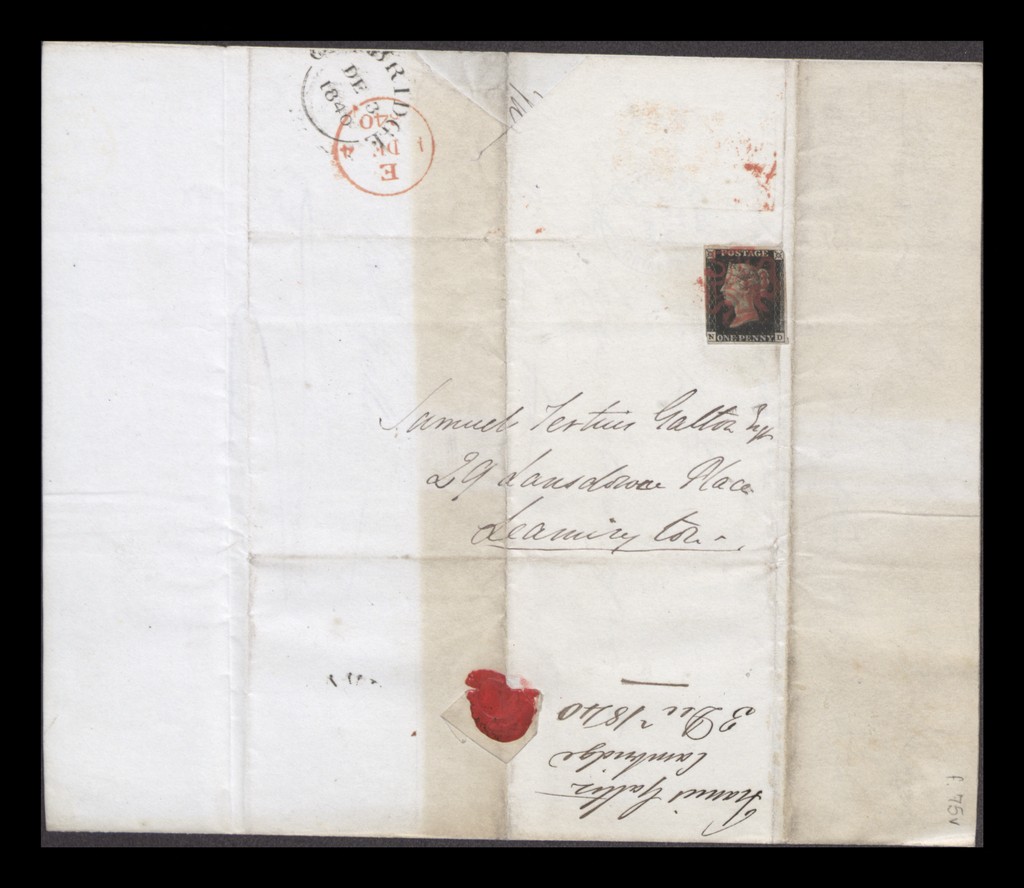 CAMBRIDGE
DE 3
1840
E
1 DE 4
1840
POSTAGE
N ONE PENNY D
Samuel Tertius Galton Esqr
29 Lansdowne Place
Leamington.
Francis Galton
Cambridge
3 Decr 1840
f. 75v